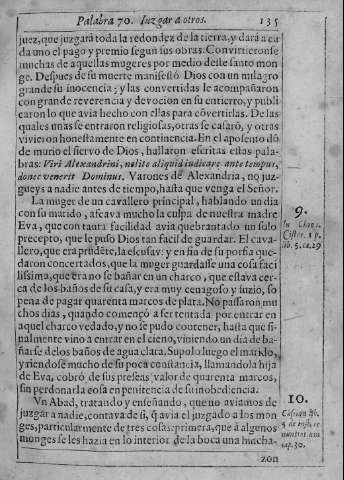 Palabra 70. Iuzgar à otros. 135
juez, que juzgarà toda la redondez de la tierra, y darà a ca
da uno el pago y premio segun sus obras. Convirtieronse
muchas de aquellas mugeres por medio deste santo mon
ge. Despues de su muerte manifestò Dios con un milagro
grande su inocencia; y las convertidas le acompañaron
con grande reverencia y devocion en su entierro, y publi
caron lo que avia hecho con ellas para cõvertirlas. De las
quales unas se entraron religiosas, otras se casarõ, y otras
vivieron honestamente en continencia. En el aposento dõ
de murio el siervo de Dios, hallaron escritas estas pala-
bras: Viri Alexandrini, nolite aliquid iudicare ante tempus,
donec venerit Dominus. Varones de Alexandria, no juz-
gueys a nadie antes de tiempo, hasta que venga el Señor.
La muger de un cavallero principal, hablando un dia
con su marido, afeava mucho la culpa de nuestra madre
Eva, que con tanta facilidad avia quebrantado un solo
precepto, que le puso Dios tan facil de guardar. El cava-
llero, que era prudẽte, la escusava: y en fin de su porfia que-
daron concertados, que la muger guardasse una cosa faci
lissima, que era no se bañar en un charco, que estava cer-
ca de los baños de su casa, y era muy cenagoso y suzio, so
pena de pagar quarenta marcos de plata. No passaron mu
chos dias, quando començò a ser tentada por entrar en
aquel charco vedado, y no se pudo contener, hasta que fi-
nalmente vino a entrar en el cieno, viniendo un dia de ba-
ñarse de los baños de agua clara. Supolo luego el marido,
y riendose mucho de su poca constancia, llamandola hija
de Eva, cobrò de sus preseas, valor de quarenta marcos,
sin perdonarla cosa en penitencia de su inobediencia.
Vn Abad, tratando y enseñando, que no aviamos de
juzgar a nadie, contava de si, q̃ avia el juzgado a los mon
ges, particularmente de tres cosas: primera, que à algunos
monges se les hazia en lo interior de la boca una hincha-
zon
9.
In Chron.
Cister. 1 p.
lib. 5. c. 29
10.
lib.
cap. 30.